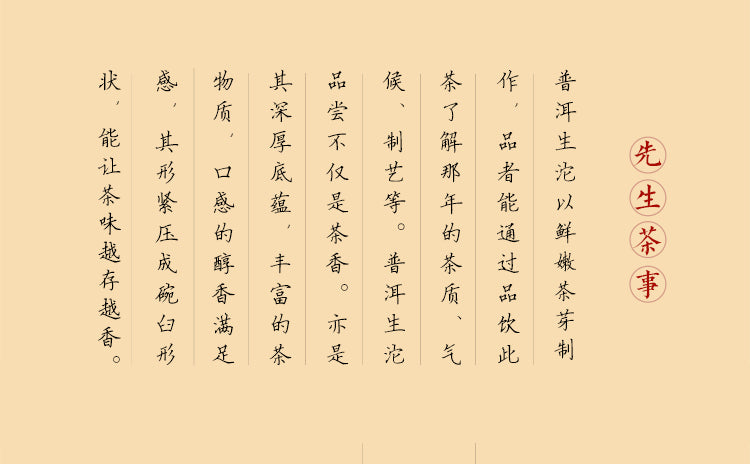 先生茶事
普洱生沱以鲜嫩茶芽制
作，品者能通过品饮此
茶了解那年的茶质、气
候、制艺等。普洱生沱
品尝不仅是茶香。亦是
其深厚底蕴，丰富的茶
物质，口感的醇香满足
感，其形紧压成碗臼形
状，能让茶味越存越香。